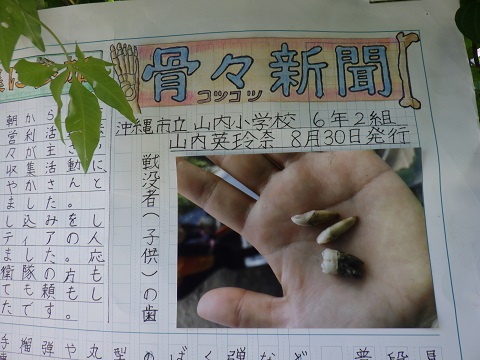 骨々新聞
コツコツ
沖縄市立 山内小学校 6年2組
山内英玲奈 8月30日発行
戦没者(子供)の歯
朝から
営利活
々が主
収集活動に
やかさんと
ました。
し込みをし
ティアの人
ました。応
衛隊の方も
ても頼もし
たです。
手榴弾や丸型の
ばく弾など